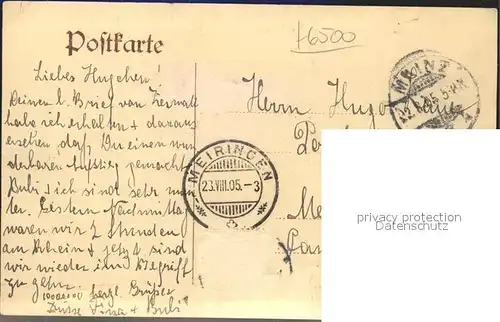 Postkarte
+6500
Liebes Hugchen!
Deinen l. Brief von Zermatt
habe ich erhalten + daraus
ersehen, daß Du einen wun-
derbaren Aufstieg gemacht.
Bubi + ich sind sehr mun-
ter. Gestern Nachmittag
waren wir 2 Stunden
am Rhein + jetzt sind
wir wieder im Begriff
zu gehen.
1000000 herzl. Grüße
+ Bubi
Herrn Hugo
MAINZ
5-6N.
MEIRINGEN
23.VIII.05.-3
Me
privacy protection
Datenschutz